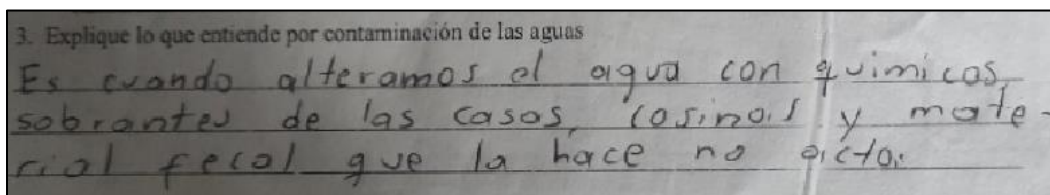 3. Explique lo que entiende por contaminación de las aguas
Es cuando alteramos el agua con quimicos,
sobrantes de las casas, cosinas y mate-
rial fecal que la hace no acta.